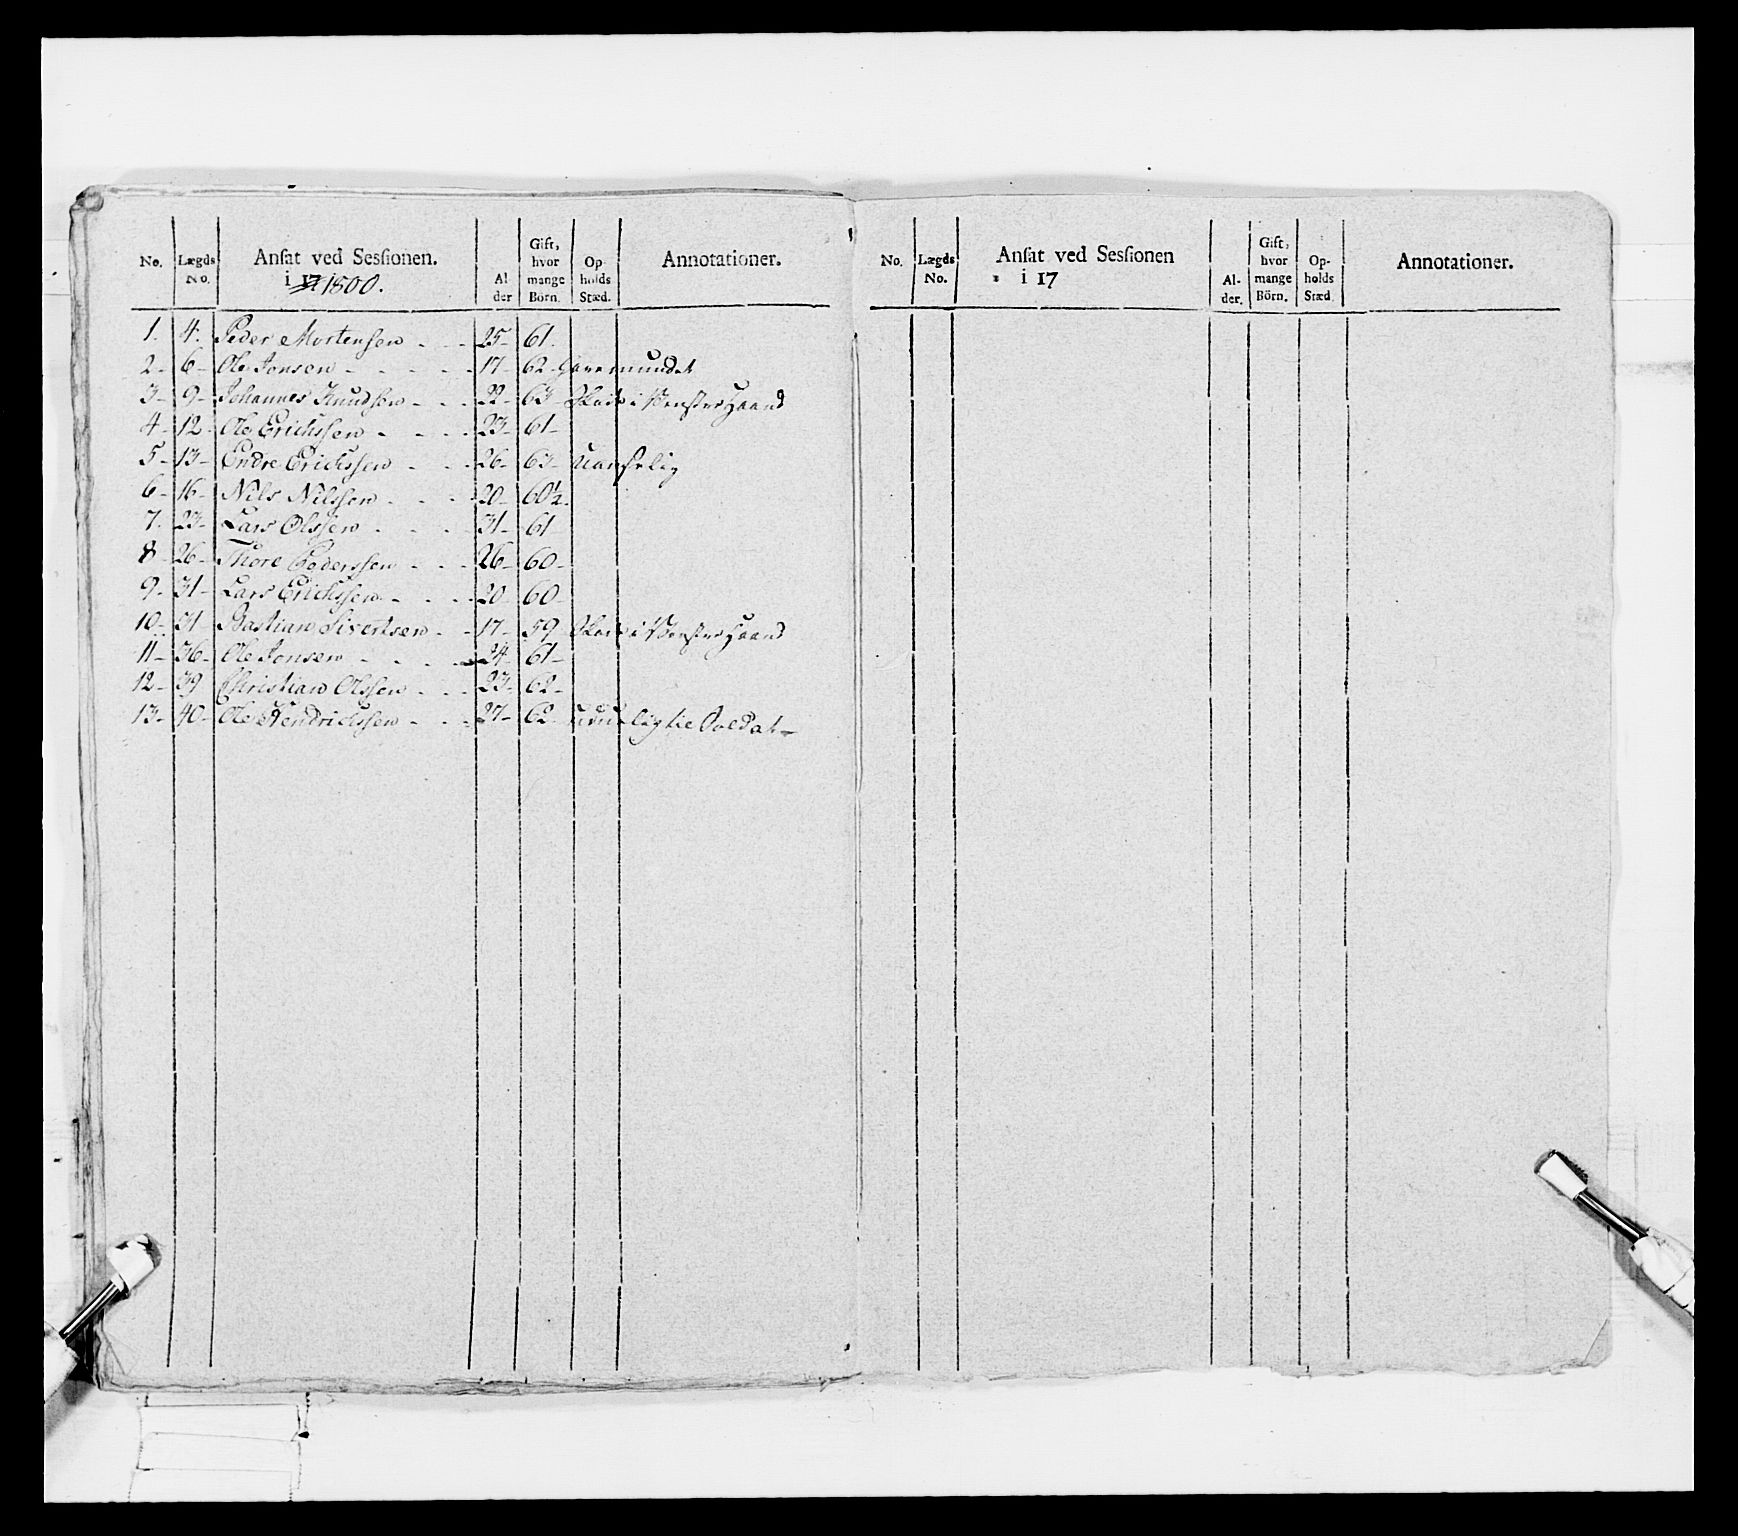 No. Lægds No. Ansat ved Sessionen. i 17 1800. Al der Gift, hvor mange Börn. Op holds Stæd. Annotationer.
1. 4. Peder Mortensen - - 25- 61.
2- 6- Ole Jonsen - - - - - 17- 62-
3- 9- Johannes Knudsen - - - 22- 63- Skade i Venstre Haand
4- 12- Ole Erichssen - - - - 23- 61-
5- 13- Endre Erichssen - - - 26- 63- Uanselig
6- 16- Nils Nilssen - - - - 20- 60½-
7- 23- Lars Olssen - - - - 31- 61
8- 26- Thore Pederssen - - - 26- 60-
9- 31- Lars Erichssen - - - 20- 60-
10- 31 Bastian Sivertsen - - 17- 59 Skade i Venstre Haand
11- 36- Ole Jonsen - - - - 24- 61-
12- 39 Christian Olssen - - - 23- 62-
13- 40- Ole Hendrichssen - - - 27- 62- Soldat-
No. Lægds No. Ansat ved Sessionen i 17 Al- der. Gift, hvor mange Börn. Op- holds Stæd Annotationer.